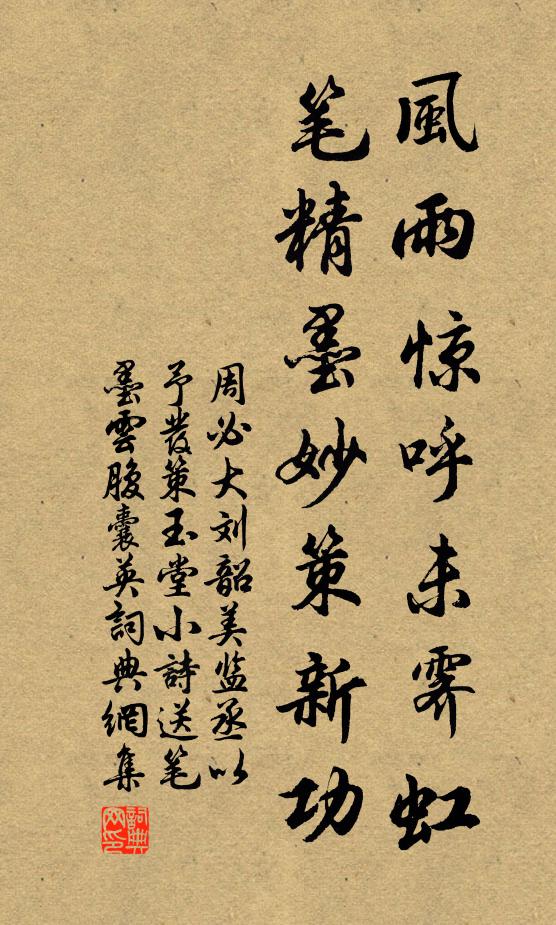 風雨惊呼未霁虹
笔精墨妙策新功
周必大刘韶美监丞以
予發策玉堂小詩送笔
墨雲腹囊英詞典網集
詞典网印